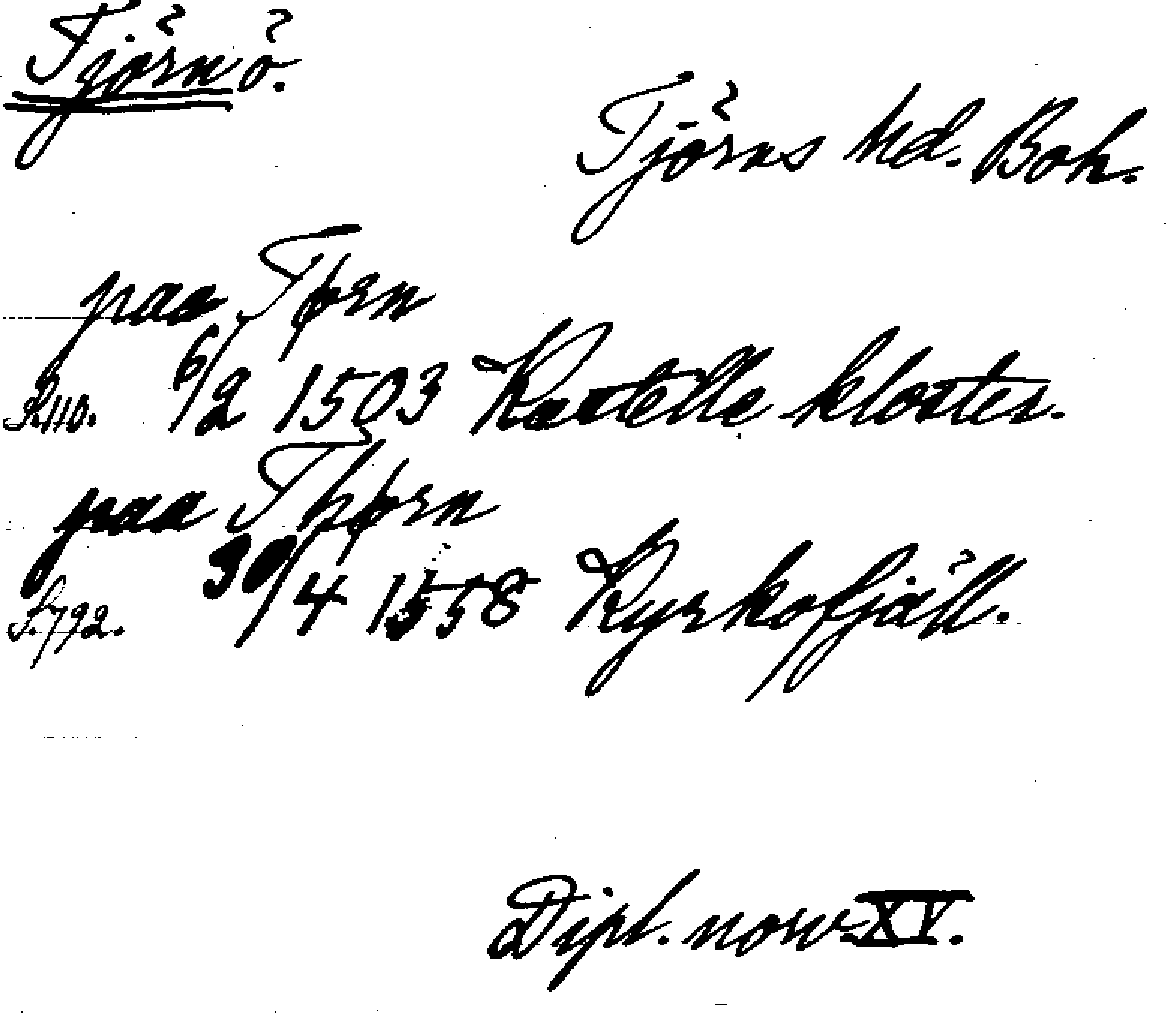 Tjörn ö.
Tjörns hd. Boh.
paa Tørn
S.110. 6/2 1503 Kastelle kloster.
paa Thørn
S.792. 30/4 1558 Kyrkofjäll.
Dipl. norv. XV.